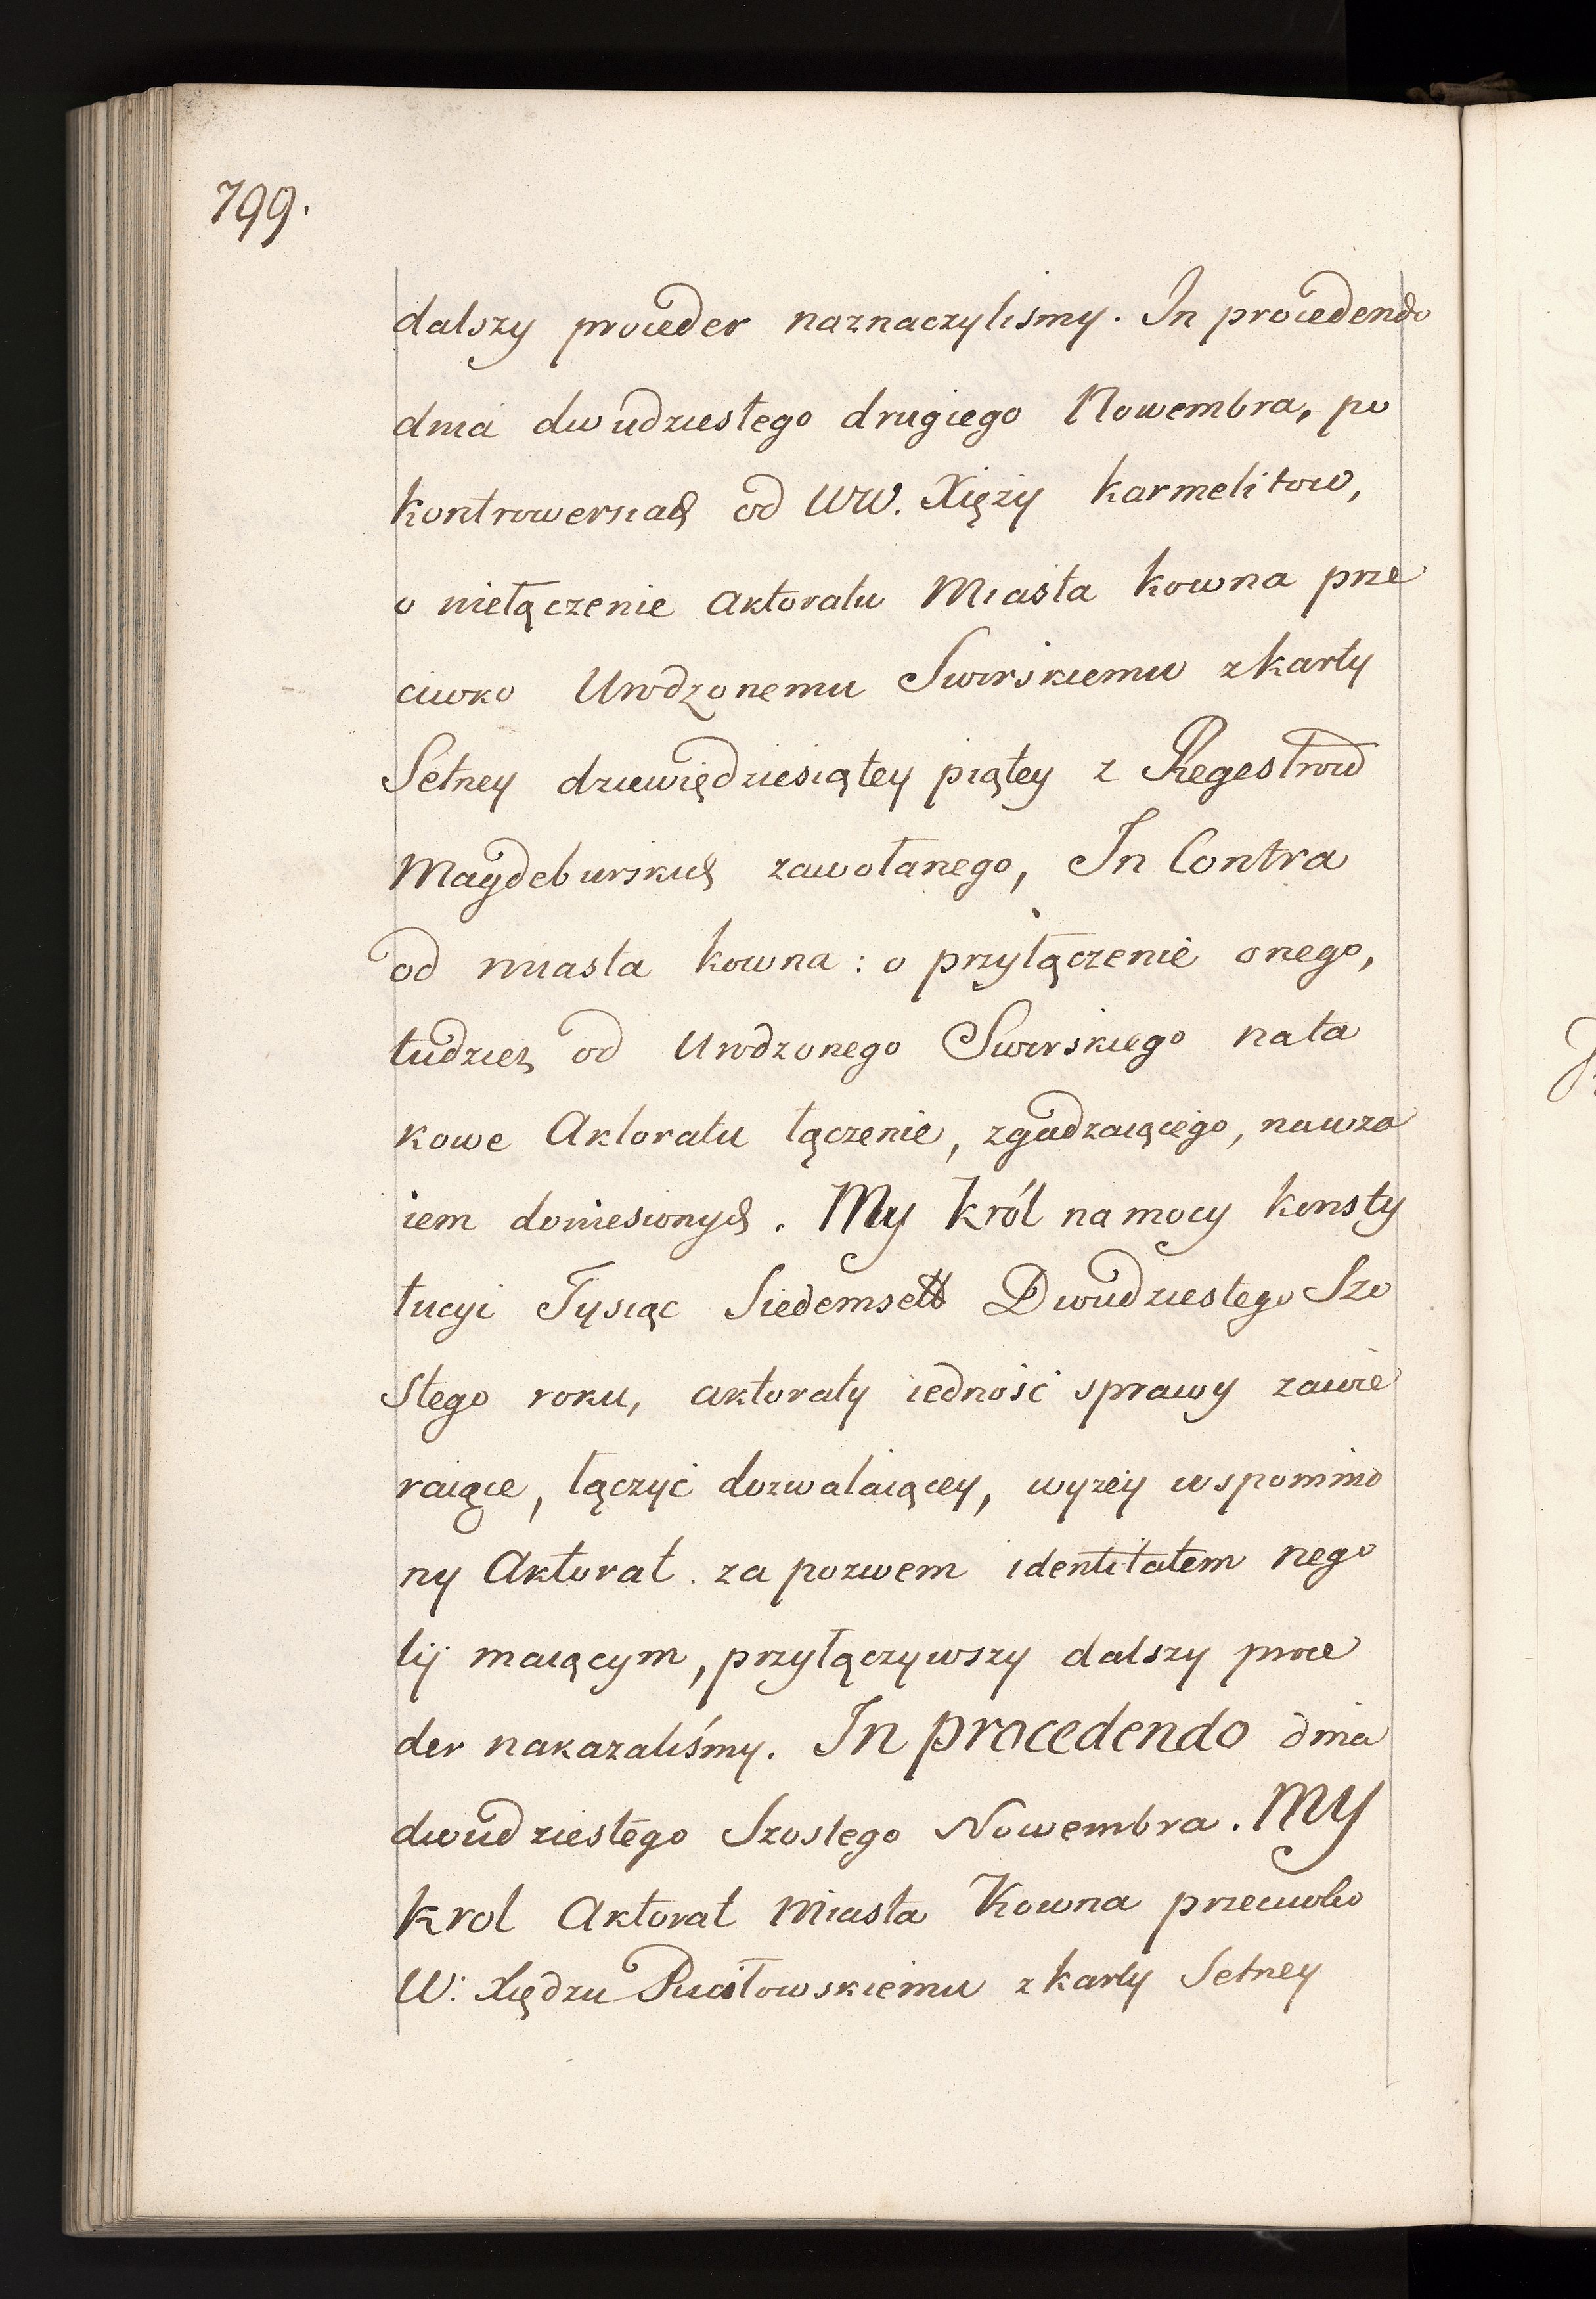 799.
dalszy proceder naznaczylismy. In procedendo
dnia dwudziestego drugiego Nowembra, po
kontrowersiach od WW. Xięży karmelitow,
o niełączenie aktoratu Miasta kowna prze
ciwko Urodzonemu Swirskiemu z karty
Setney dziewiędziesiątey piątey z Regestrow
Magdeburskich zawołanego, In Contra
od miasta kowna: o przyłączenie onego,
tudziez od Urodzonego Swirskiego na ta
kowe Aktoratu łączenie, zgadzaiącego, nawza
iem doniesionych. My król na mocy konsty
tucyi Tysiąc Siedemset Dwudziestego Szo
stego roku, aktoraty iedność sprawy zawie
raiące, łączyć dozwalaiącey, wyzey wspomnio
ny Aktorat. za pozwem identitatem nego
tij maiącym, przyłączywszy dalszy proce
der nakazaliśmy. In procedendo dnia
dwudziestego Szostego Nowembra. My
krol Aktorat Miasta Kowna przeciwko
W: Xiędzu z karty Setney